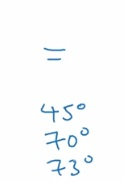 =
45°
70°
73°